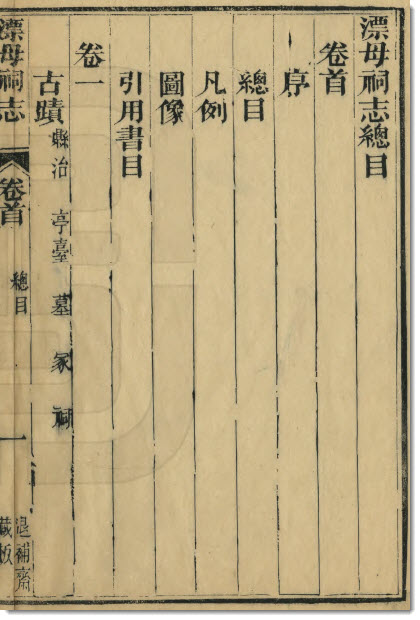 漂母祠志總目
卷首
序
總目
凡例
圖像
引用書目
卷一
古蹟 縣治 亭臺 墓 冢 祠
漂母祠志 卷首 總目 一 退補齋藏板